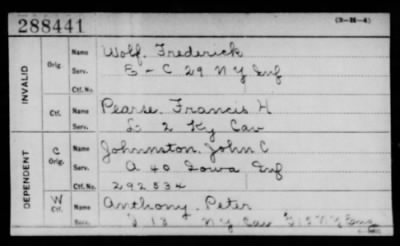 288441
(3-H-4)
INVALID
Orig.
Name Wolf, Frederick
Serv. B - C 29 N Y Inf
Ctf. No.
Ctf.
Name Pearse, Francis H
Serv. L 2 Ky Cav
DEPENDENT
C
Orig.
Name Johnnston, John C
Serv. A 40 Iowa Inf
Ctf. No. 292534
W
Ctf.
Name Anthony, Peter
Serv. 13 N Y Cav